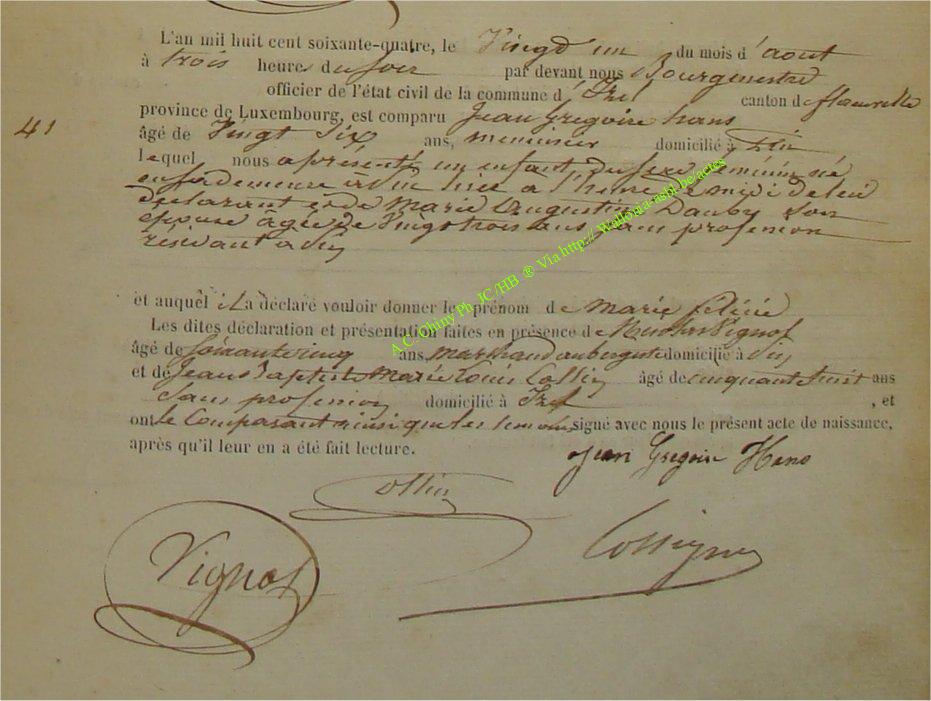 L'an mil huit cent soixante-quatre, le Vingd un du mois d'août
à trois heures du soir par devant nous Bourgmestre
officier de l'état civil de la commune d'Izel canton de florenville
province de Luxembourg, est comparu Jean Gregoire hans
41
âgé de Vingt Six ans, menuisier domicilié à
lequel nous a présenté un enfant du sexe féminin né
en sa demeure à ce jour à l'heure de midi de lui
declarant et de Marie Augustine Dauby son
épouse âgée de Vingt trois ans sans profession
résidant à
et auquel il a déclaré vouloir donner le prénom de Marie félicie
Les dites déclaration et présentation faites en présence de Vignol
âgé de soixante cinq ans, marchand aubergiste domicilié à
et de Jean Baptiste Marie Louis âgé de cinquant huit ans
Sans profession domicilié à Izel, et
ont le Comparant ainsi que les temoins signé avec nous le présent acte de naissance,
après qu'il leur en a été fait lecture.
Jean Gregoire Hans
Ollin
Vignol
A.C. Chiny Ph. JC/HB ® Via http:// Wallonia-asbl.be/actes